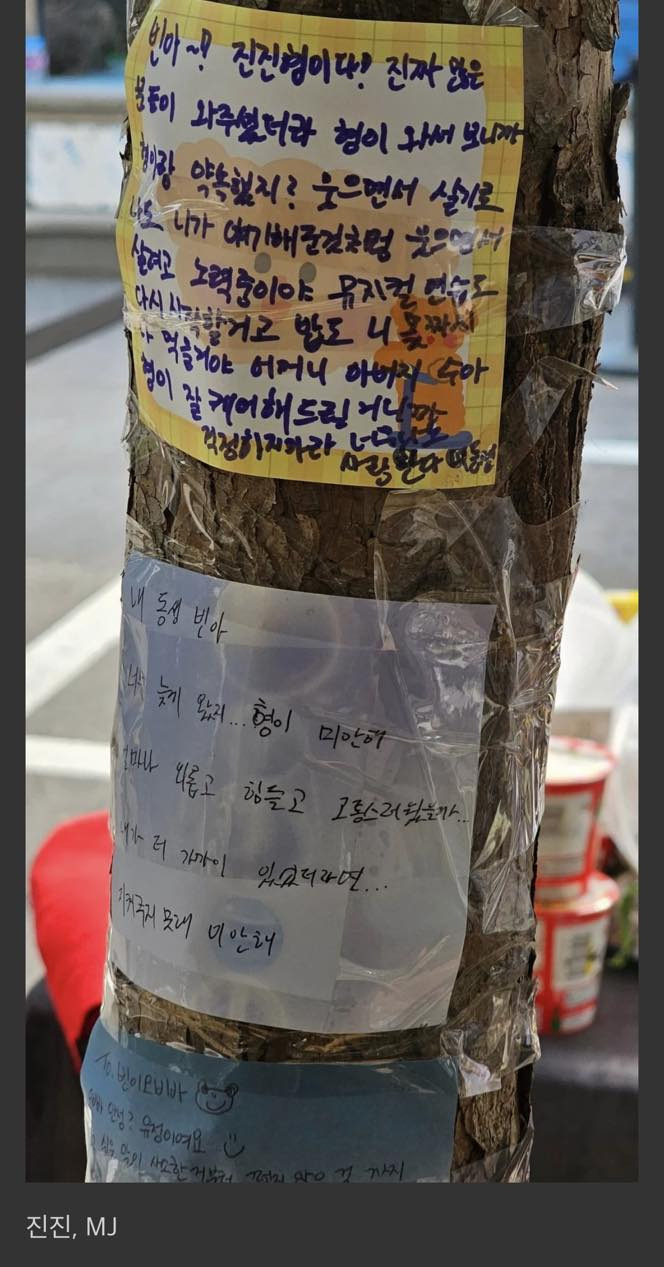 빈아~! 진진형이다! 진짜 많은
분들이 와주셨더라 형이 와서 보니까
형이랑 약속했지? 웃으면서 살기로
나도 니가 얘기해준것처럼 웃으면서
살려고 노력중이야 뮤지컬 연습도
다시 시작할거고 밥도 니 몫까지
다 먹을거야 어머니 아버지 수아
형이 잘 케어해드릴거니까
걱정하지마라
사랑한다
내 동생 빈아
너무 늦게 왔지...형이 미안해
얼마나 외롭고 힘들고 고통스러웠을까..
내가 더 가까이 있었더라면...
지켜주지 못해 미안해
To. 빈이오빠
오빠 안녕? 유정이에요
사소한 거부터 까지
진진, MJ